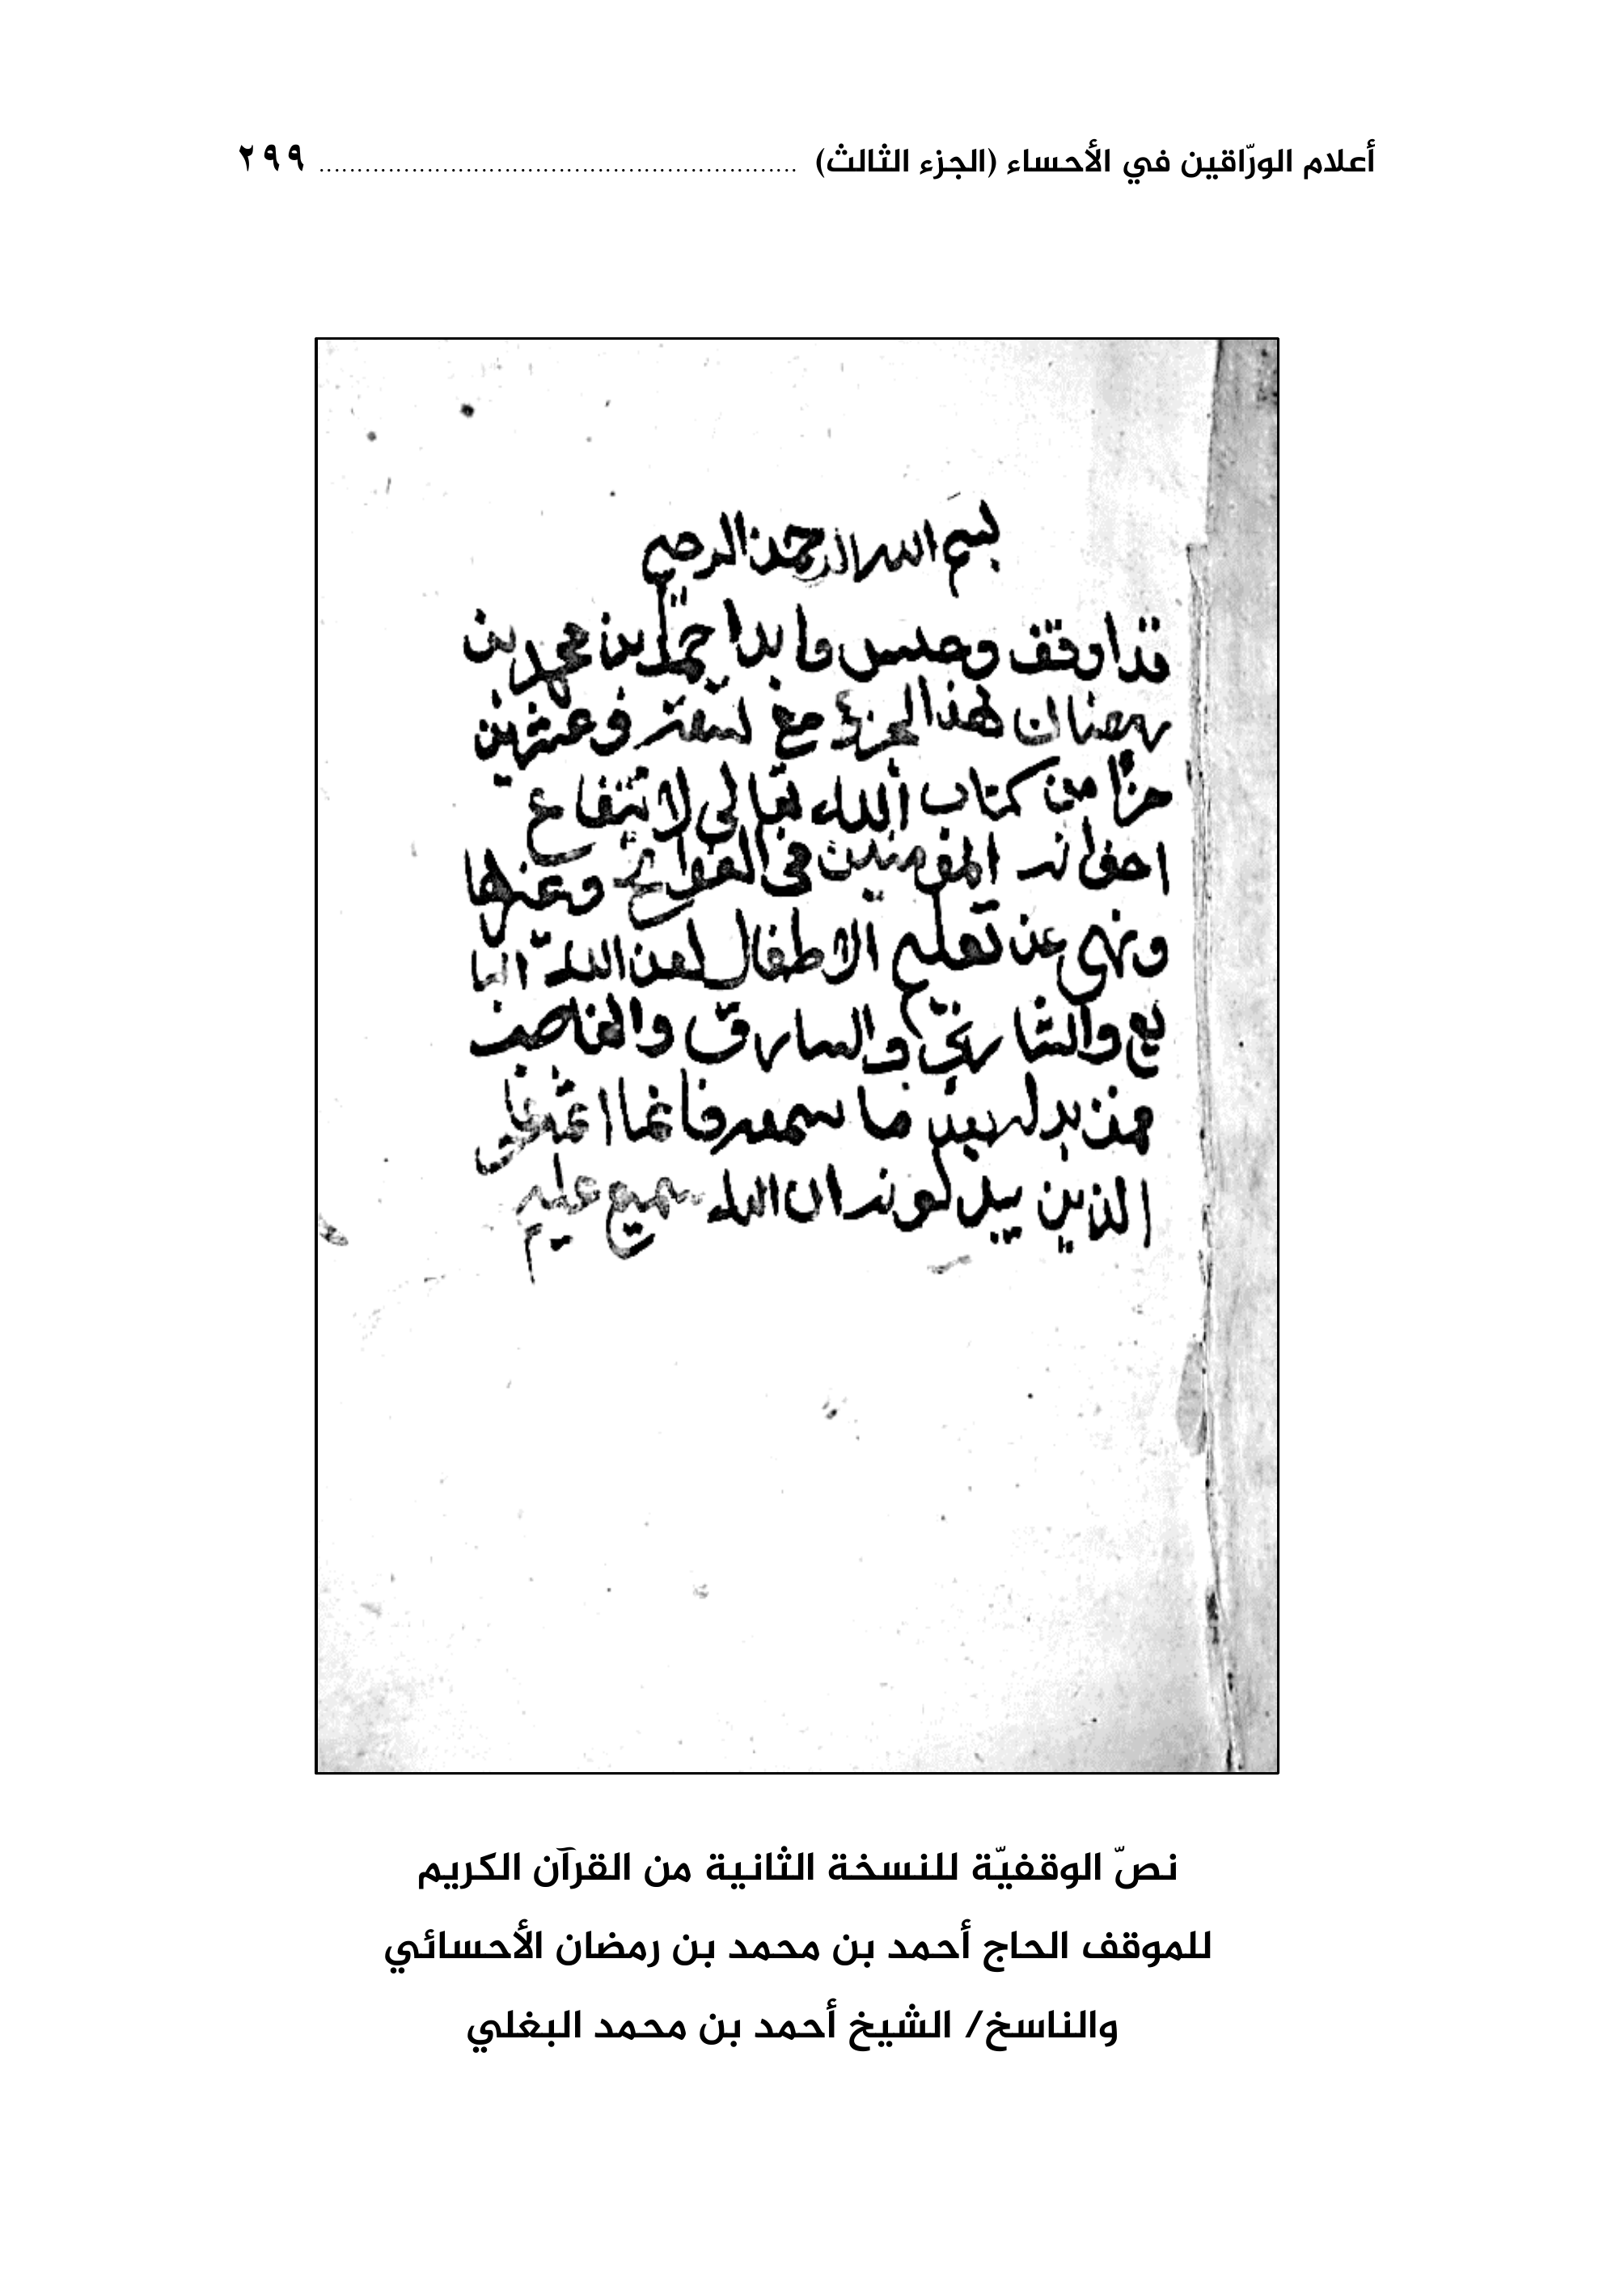 أعلام الورّاقين في الأحساء (الجزء الثالث) ........................................ ٢٩٩
بسم الله الرحمن الرحيم
قد اوقف وحبس وابد احمد بن محمد بن
رمضان لهذا الجزء مع تسعة وعشرين
جزأ من كتاب الله تعالى لانتفاع
اخوانه المؤمنين في الفواتح وغيرها
ونهى عن تعليم الاطفال لعن الله البا
يع والشاري والسارق والغاصب
فمن بدله بعد ما سمعه فانما اثمه على
الذين يبدلونه ان الله سميع عليم
نصّ الوقفيّة للنسخة الثانية من القرآن الكريم
للموقف الحاج أحمد بن محمد بن رمضان الأحسائي
والناسخ/ الشيخ أحمد بن محمد البغلي